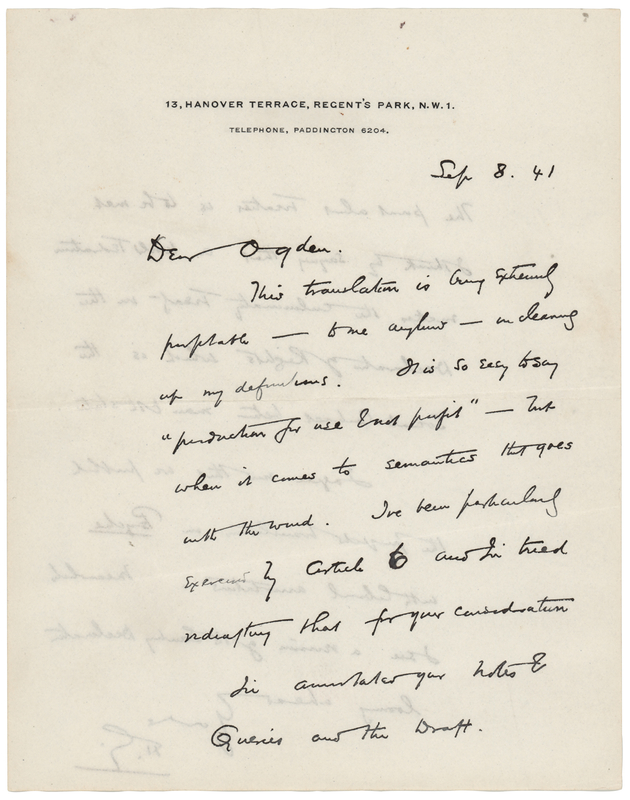 13, HANOVER TERRACE, REGENT'S PARK, N.W.1.
TELEPHONE, PADDINGTON 6204.
Sep 8. 41
Dear Ogden.
This translation is being extremely
profitable — to me anyhow — in cleaning
up my definitions. It is so easy to say
"production for use & not profit" — but
when it comes to semantics that goes
with the wind. I've been particularly
exercised by Article 6 and I've tried
redrafting that for your consideration
I've annotated your Notes &
Queries and the Draft.